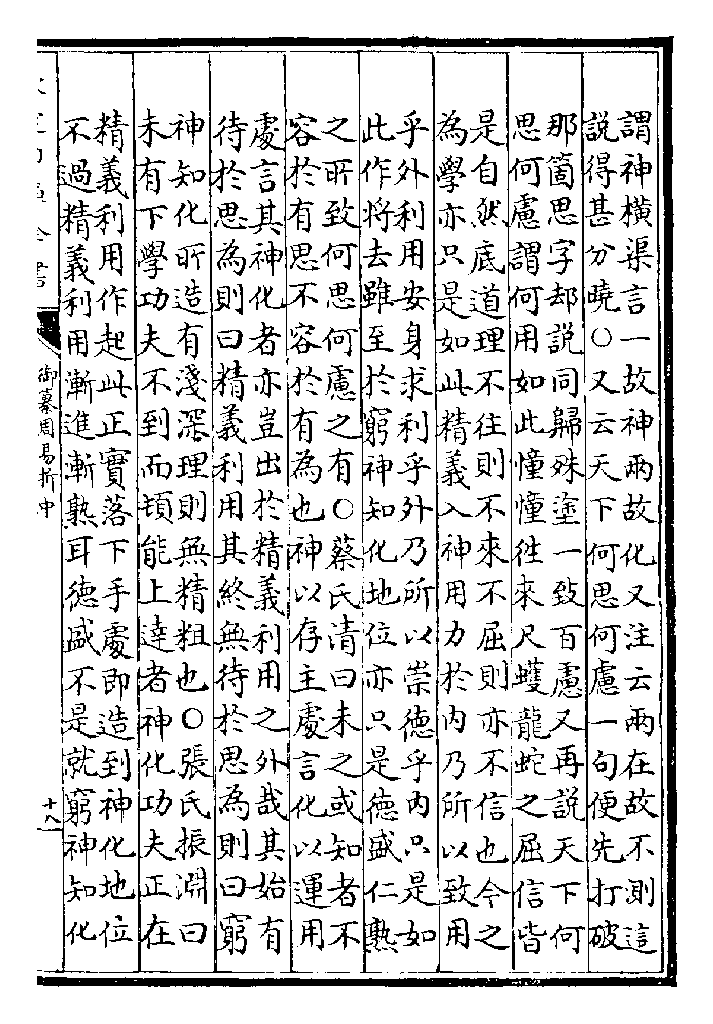 謂神橫渠言一故神兩故化又注云兩在故不測這
說得甚分曉○又云天下何思何慮一句便先打破
那箇思字却說同歸殊塗一致百慮又再說天下何
思何慮謂何用如此憧憧往來尺蠖龍蛇之屈信皆
是自然底道理不往則不來不屈則亦不信也今之
為學亦只是如此精義入神用力於內乃所以致用
乎外利用安身求利乎外乃所以崇德乎內只是如
此作將去雖至於窮神知化地位亦只是德盛仁熟
之所致何思何慮之有○蔡氏清曰未之或知者不
容於有思不容於有為也神以存主處言化以運用
處言其神化者亦豈出於精義利用之外哉其始有
待於思為則曰精義利用其終無待於思為則曰窮
神知化所造有淺深理則無精粗也○張氏振淵曰
未有下學功夫不到而頓能上達者神化功夫正在
精義利用作起此正實落下手處即造到神化地位
不過精義利用漸進漸熟耳德盛不是就窮神知化
御纂周易折中
十八